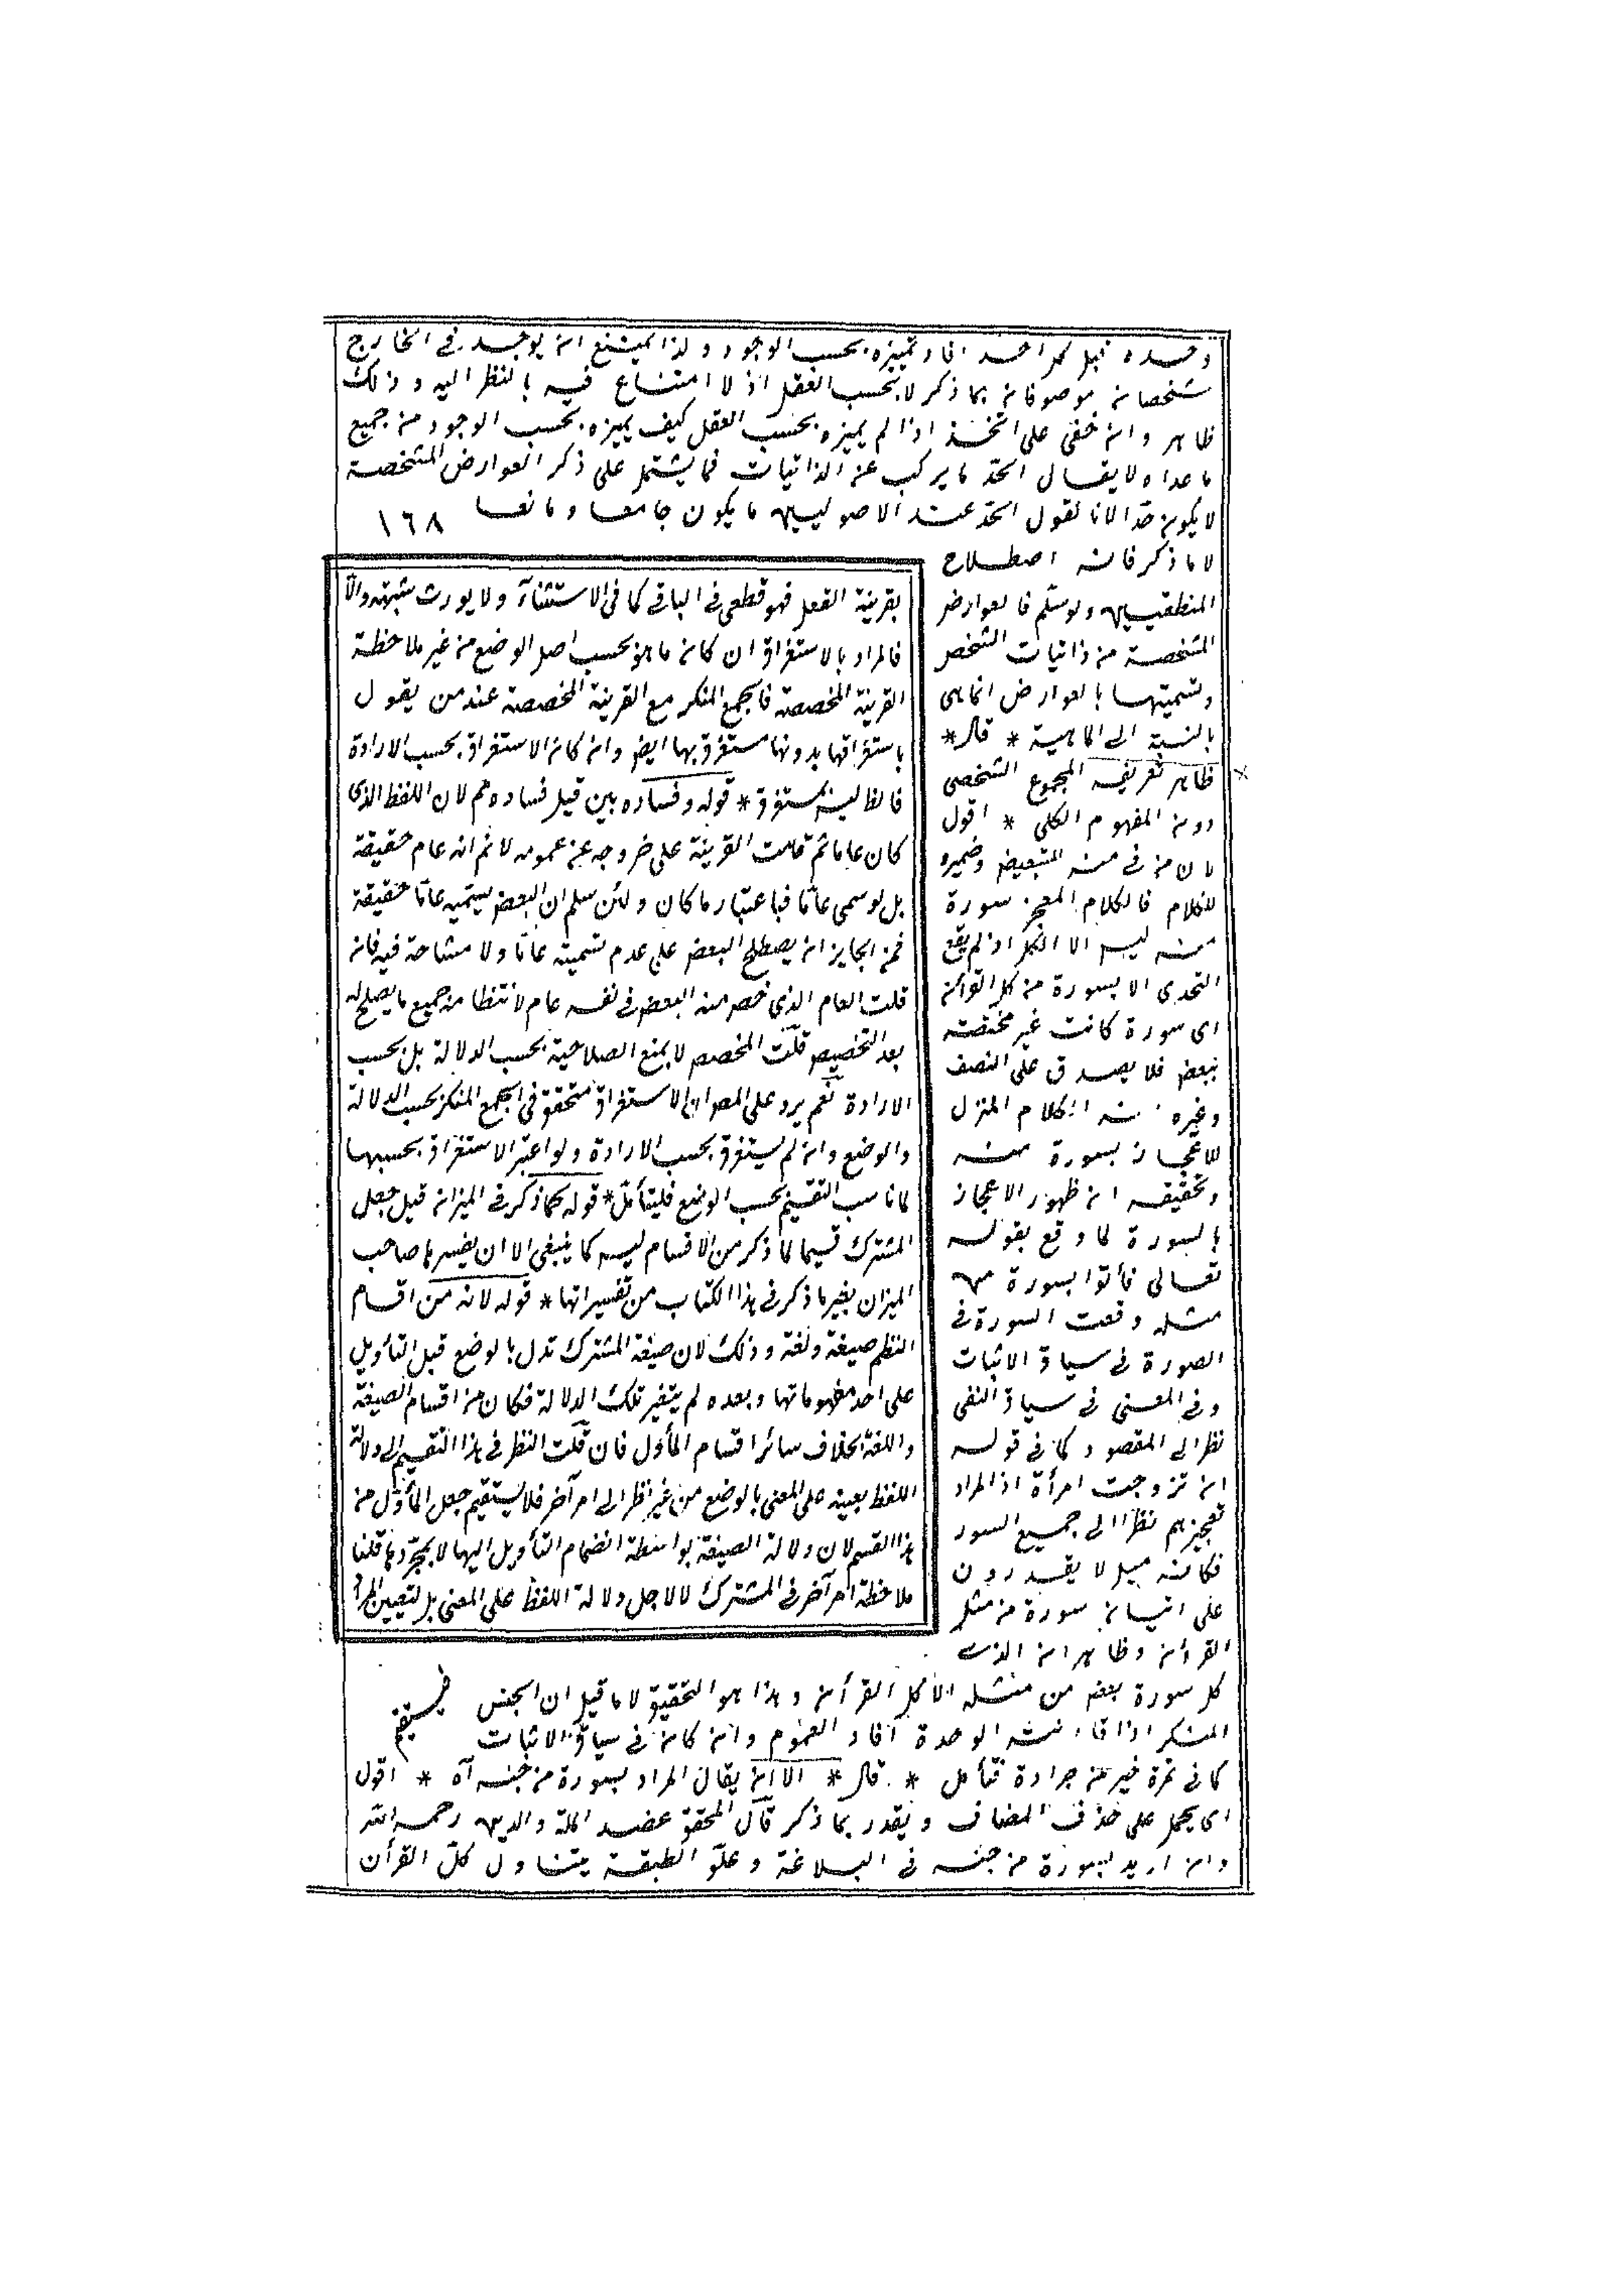 وحده قيل لمراحد افاد تميزه بحسب الوجود ولذا يمتنع ان يوجد في الخارج
شخصان موصوفان بما ذكر لا بحسب العقل اذ لا امتناع فيه بالنظر اليه وذلك
ظاهر وان خفى على اتخذ اذا لم يميزه بحسب العقل كيف يميزه بحسب الوجود من جميع
ما عداه لا يقال الحدّ ما يركب عن الذاتيات فما يشتمل على ذكر العوارض المشخصة
لا يكون حدّا لانا نقول الحدّ عند الاصوليين ما يكون جامعا ومانعا
١٦٨
لا ما ذكر فانه اصطلاح
المنطقيين ولو سلّم فالعوارض
المشخصة من ذاتيات الشخص
وتسميتها بالعوارض انما هى
بالنسبة الى الماهية * قال *
ظاهر تعريف المجموع الشخصى
دون المفهوم الكلى * اقول
لان من في منه للتبعيض وضميره
للكلام فالكلام المعجز سورة
منه ليس الا الكل اذ لم يقع
التحدى الا بسورة من كل القرأن
اى سورة كانت غير مختصة
ببعض فلا يصدق على النصف
وغيره انه الكلام المنزل
للاعجاز بسورة منه
وتحقيقه ان ظهور الاعجاز
بالسورة لما وقع بقوله
تعالى فأتوا بسورة من
مثله وقعت السورة في
الصورة في سياق الاثبات
وفي المعنى في سياق النفى
نظرا الى المقصود كما في قوله
ان تزوجت امرأة اذ المراد
تعجيزهم نظرا الى جميع السور
فكانه قيل لا يقدرون
على اتيان سورة من مثل
القرأن وظاهر ان الذى
كل سورة بعض من مثله الا كل القرأن وهذا هو التحقيق لا ما قيل ان الجنس
المنكر اذا قارنته الوحدة افاد العموم وان كان في سياق الاثبات
كما في تمرة خير من جرادة فتأمل * قال * الا ان يقال المراد بسورة من جنسه آه * اقول
اى يحمل على حذف المضاف ويقدر بما ذكر قال المحقق عضد الملة والدين رحمه الله
وان اريد بسورة من جنسه في البلاغة وعلوّ الطبقة يتناول كلّ القرأن
بقرينة العقل فهو قطعى في الباقى كما في الاستثناء ولا يورث شبهة والا
فالمراد بالاستغراق ان كان ما هو بحسب اصل الوضع من غير ملاحظة
القرينة المخصصة فالجمع المنكر مع القرينة المخصصة عند من يقول
باستغراقها بدونها مستغرق بها ايض وان كان الاستغراق بحسب الارادة
فالظ ليس بمستغرق * قوله وفساده بين قيل فساده مم لان اللفظ الذى
كان عاما ثم قامت القرينة على خروجه عن عمومه لا نم انه عام حقيقة
بل لو سمى عامّا فباعتبار ما كان ولئن سلم ان البعض يسميه عامّا حقيقة
فمن الجايز ان يصطلح البعض على عدم تسميته عامّا ولا مشاحة فيه فان
قلت العام الذى خص منه البعض في نفسه عام لانتظامه جميع ما يصلح له
بعد التخصيص قلت المخصص لا يمنع الصلاحية بحسب الدلالة بل بحسب
الارادة نعم يرد على المص ان الاستغراق متحقق في الجمع المنكر بحسب الدلالة
والوضع وان لم يستغرق بحسب الارادة ولو اعتبر الاستغراق بحسبها
لما ناسب التقسيم بحسب الوضع فليتأمل * قوله كما ذكر في الميزان قيل جعل
المشترك قسيما لما ذكر من الاقسام ليس كما ينبغى الا ان يفسرها صاحب
الميزان بغير ما ذكر في هذا الكتاب من تفسيراتها * قوله لانه من اقسام
النظم صيغة ولغة وذلك لان صيغة المشترك تدل بالوضع قبل التأويل
على احد مفهوماتها وبعده لم يتغير تلك الدلالة فكان من اقسام الصيغة
واللغة بخلاف سائر اقسام المأول فان قلت النظر في هذا التقسيم الى دلالة
اللفظ بعينه على المعنى بالوضع من غير نظر الى امر آخر فلا يستقيم جعل المأوّل من
هذا القسم لان دلالة الصيغة بواسطة انضمام التأويل اليها لا بمجرّدها قلنا
ملاحظة امر آخر في المشترك لا لاجل دلالة اللفظ على المعنى بل لتعيين المراد
فيستقيم